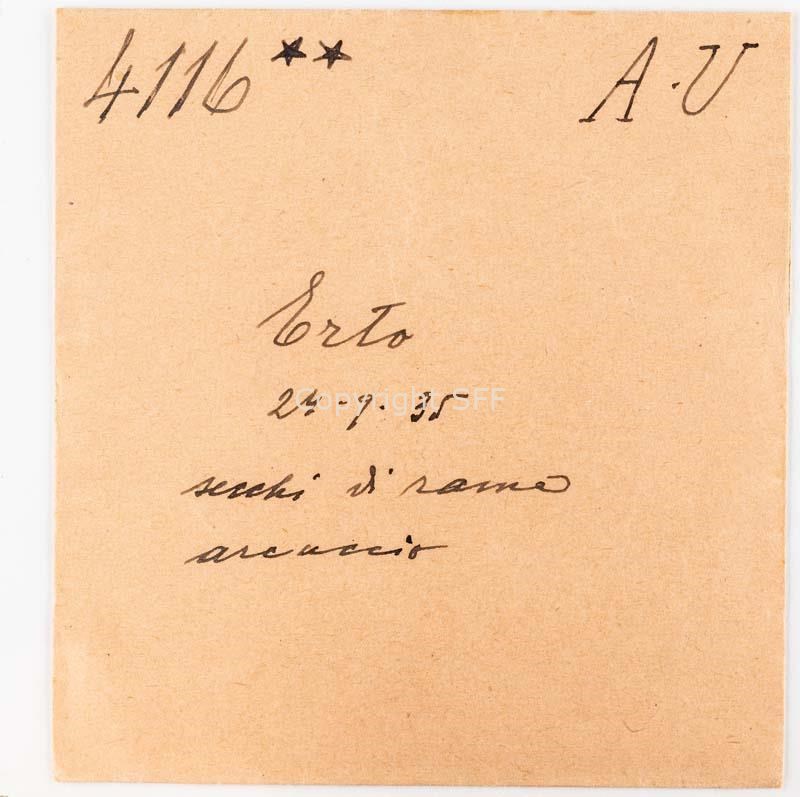 4116 ★★ A.U
Erto
24-9.35
secchi di rame
arcuccio
Copyright SFF